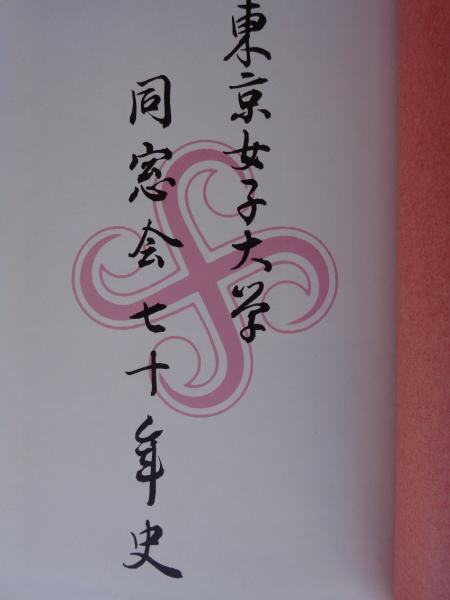 東京女子大学
同窓会七十年史